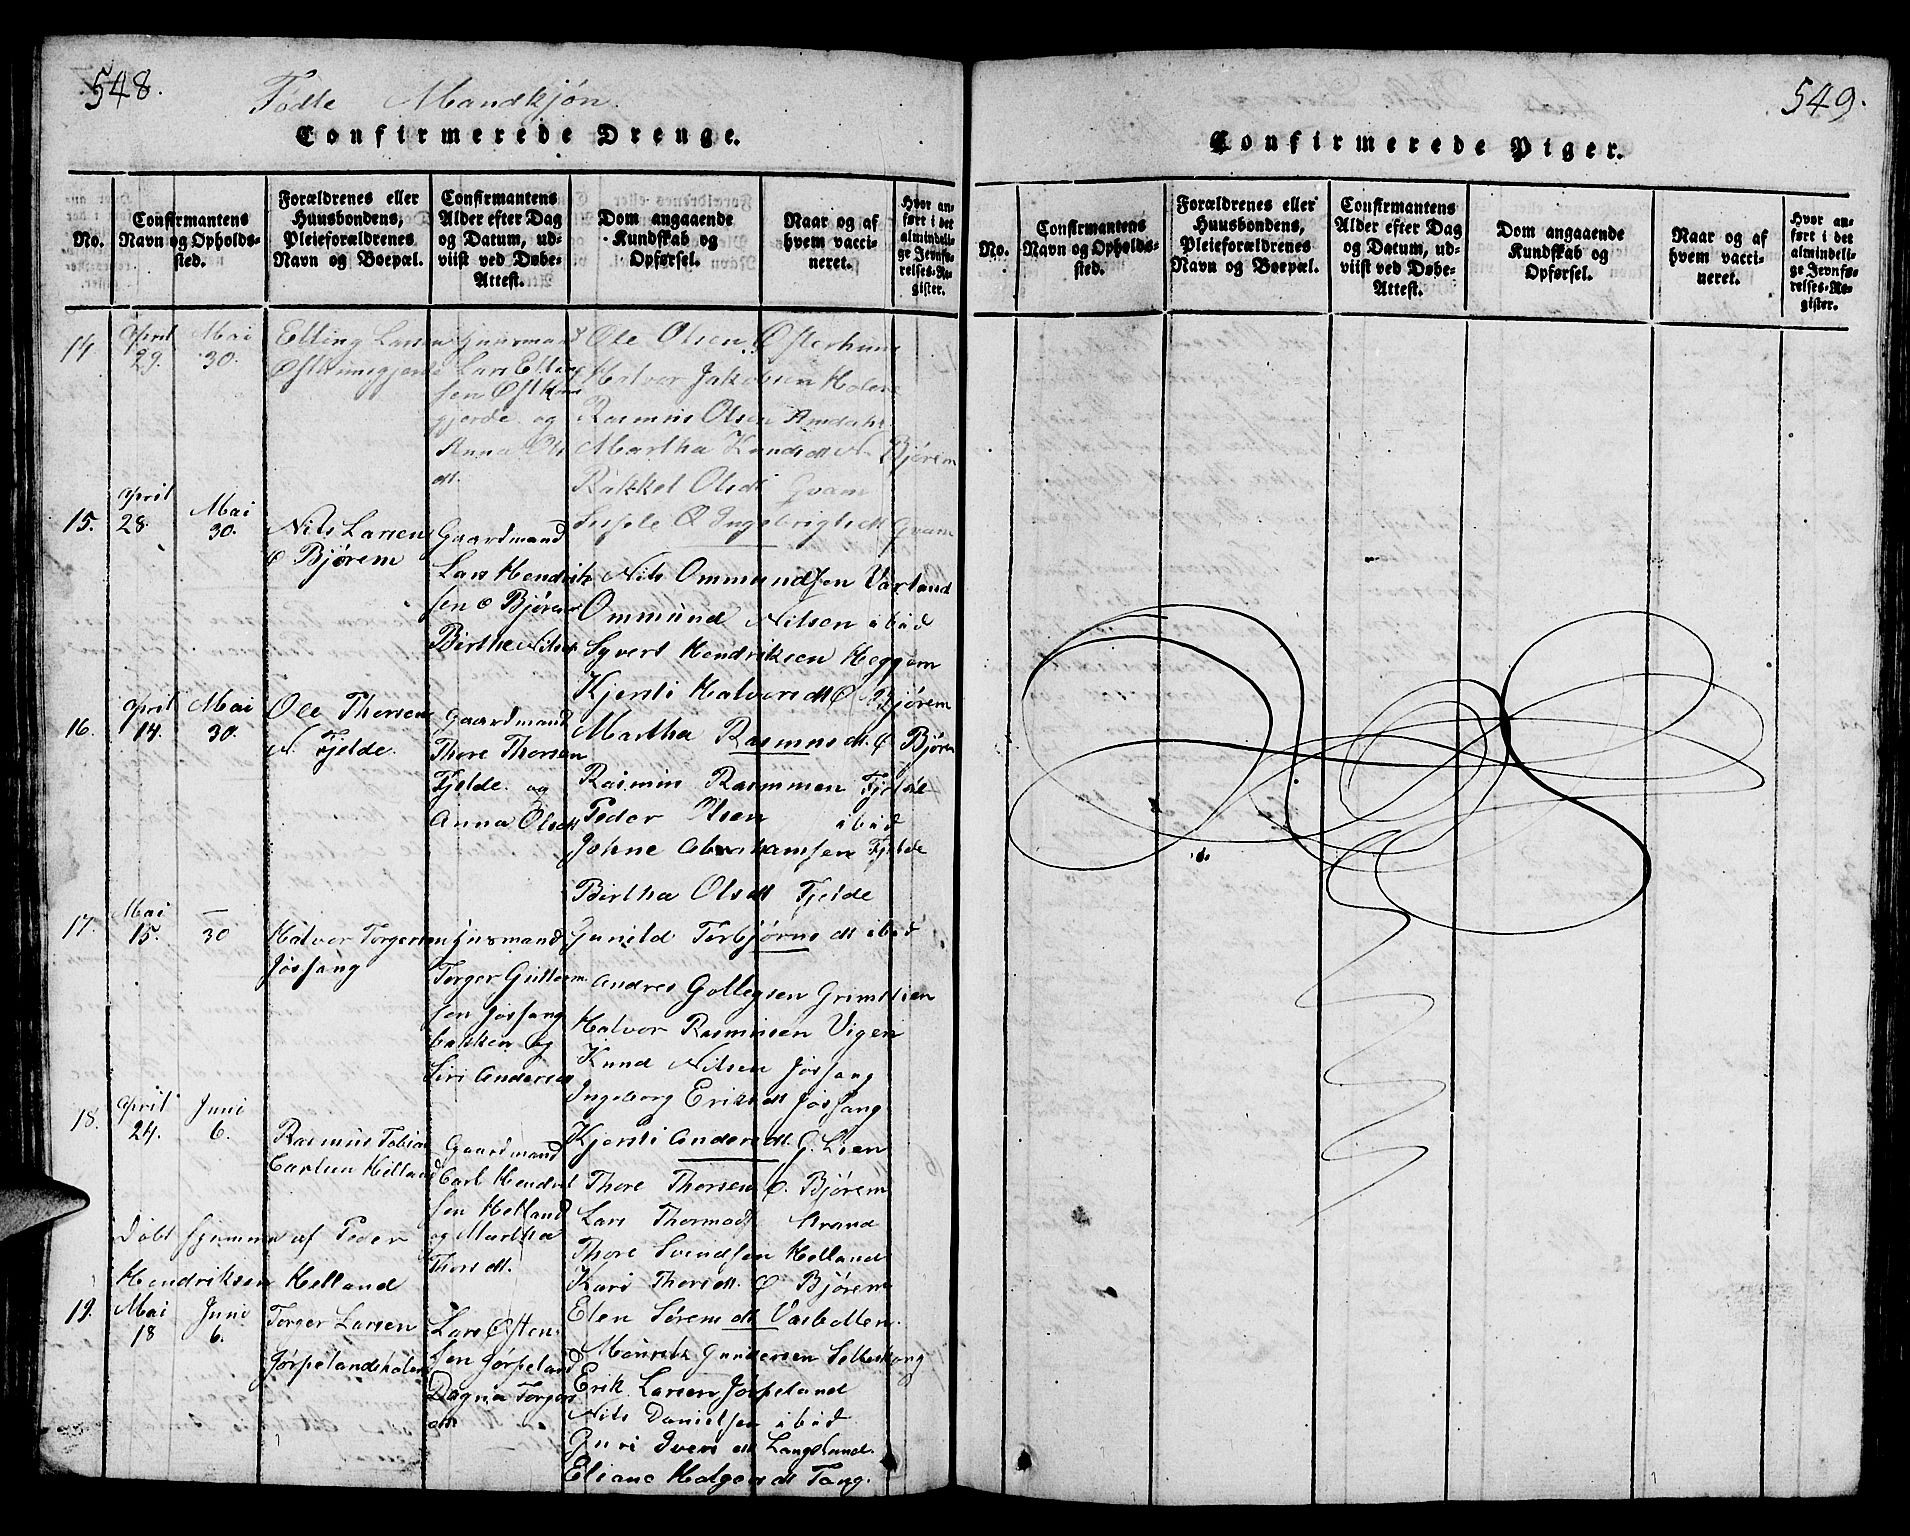 548.
Födte Mandkjön.
Confirmerede Drenge.
No.
Confirmantens Navn og Opholds-sted.
Forældrenes eller Huusbondens, Pleieforældrenes Navn og Boepæl.
Confirmantens Alder efter Dag og Datum, ud-viist ved Døbe-Attest.
Dom angaaende Kundskab og Opførsel.
Naar og af hvem vacci-neret.
Hvor an-ført i det almindeli-ge Jevnfø-relses-Re-gister.
14
April 29.
Mai 30.
Elling Larsen
Gaardmand
Lars Elling
sen
gjerde og
Anna Ols
dt.
Ole Olsen Østerhuus
Halvor Jakobsen
Rasmus Olsen Amdahl
Martha Knudsdt N. Bjørem
Rakkel Olsdt Qvam
Sissele O Ingebrigtsdt Qvam
15.
April 28.
Mai 30.
Nils Larsen
Ø Bjørem
Gaardmand
Lars Hendrik
sen Ø Bjørem
Birthe Nilsdt
Nils Ommundsen Varland
Ommund Nilsen ibid
Syvert Hendriksen Heggem
Kjersti Halvorsdt Ø Bjørem
Martha Rasmusdt. Ø Bjørem
16.
April 14.
Mai 30.
Ole Thorsen
N. Fjelde.
Gaardmand
Thore Thorsen
Fjelde og
Anna Olsdt
Rasmus Rasmussen Fjelde
Peder Olsen ibid
Johne Abrahamsen Fjelde
Birtha Olsdt Fjelde
Gunild Torbjørnsdt ibid
17.
Mai 15.
— 30
Halvor Torgersen
Jøsfang
Huusmand
Torger Guttorm
sen Jøsfang
bakken og
Siri Andersdt
Andres Gollegsen Grimslien
Halvor Rasmusen Vigen
Knud Nilsen Jøsfang
Ingeborg Eriksdt Jøsfang
Kjersti Andersdt. G. Lien
18.
April 24.
Juni 6.
Rasmus Tobias
Carlsen Helland
Gaardmand
Carl Hendrik
sen Helland
og Martha
Thorsdt.
Thore Thorsen Ø. Bjørem
Lars Thormods Strand
Thore Svendsen Helland
Kari Thorsdt. Ø Bjørem
Elen Sørensdt Vasbotten.
Döbt hjemme af Peder
Hendriksen Helland
19.
Mai 18
Juni 6.
Torger Larsen
Jørpelandsholen
Lars Østen
sen Jørpeland
Dagna Torgers
dtt
Mauritz Gundersen Selleskong
Erik Larsen Jørpeland
Nils Danielsen ibid
Guri Iversdt Langeland.
Eliane Holgersdt Tang.
549.
Confirmerede Piger.
No.
Confirmantens Navn og Opholds-sted.
Forældrenes eller Huusbondens, Pleieforældrenes Navn og Boepæl.
Confirmantens Alder efter Dag og Datum, ud-viist ved Døbe-Attest.
Dom angaaende Kundskab og Opførsel.
Naar og af hvem vacci-neret.
Hvor an-ført i det almindeli-ge Jevnfø-relses-Re-gister.